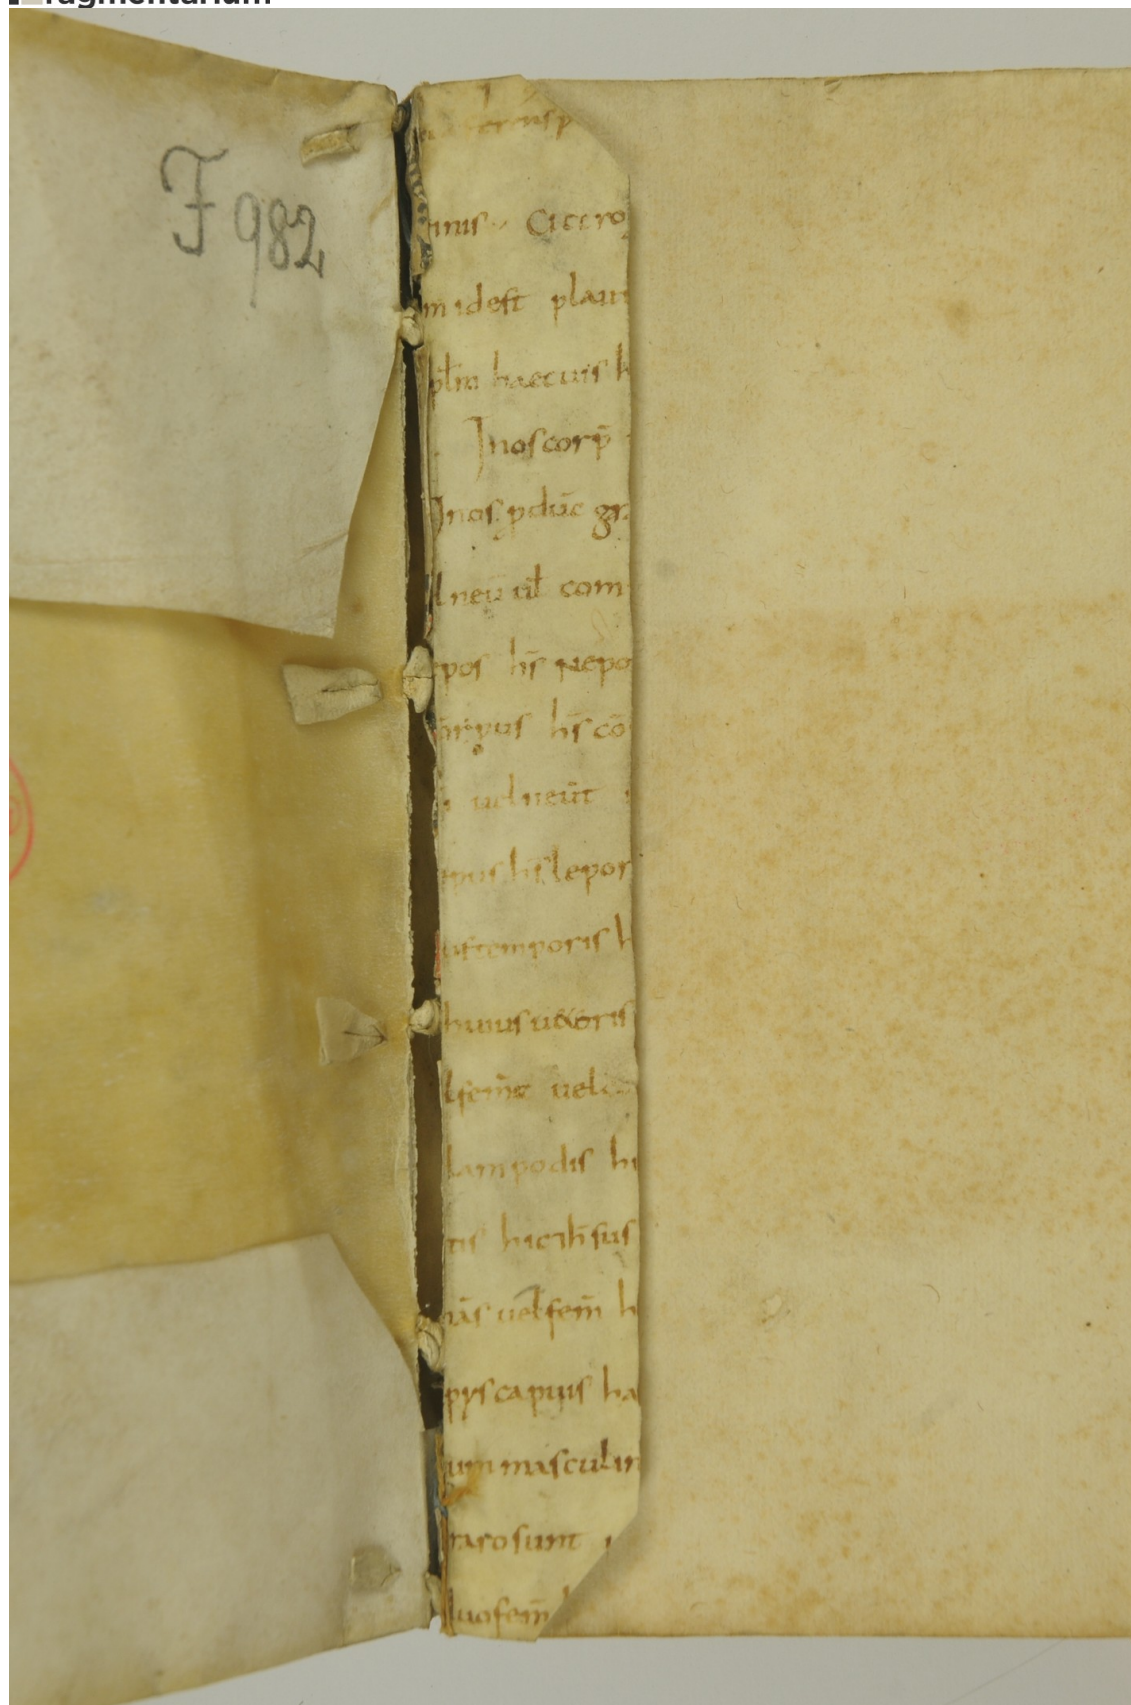 Fragmentarium
F 982
inis Cicero
m̄ idest plaut
pl̄m haec uis h
Inos corp̄
Inos pduc̄ gr
l neū ul̄ com
epos hs̄ nepo
hs̄ cō
uel neūt
pus hs̄ lepor
us temporis h
huius uxoris
l fem̄ uel
lampodis hu
tis hic 7h̄ sus
mās uel fem̄ h
pys capuis ha
um masculin
raro sunt
duo fem̄